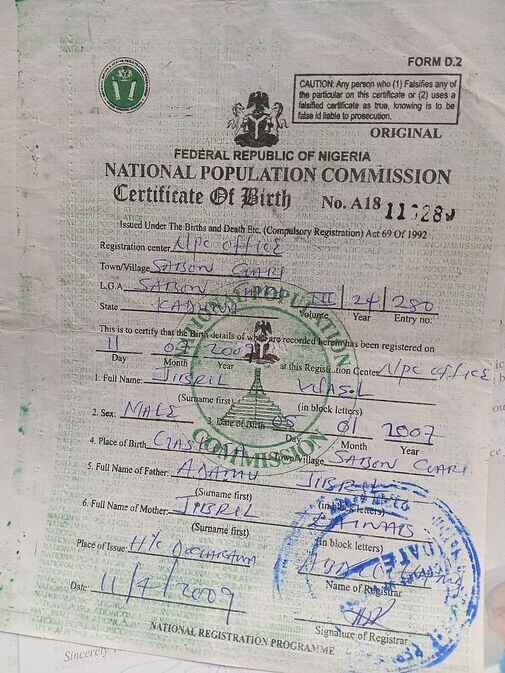 FORM D.2
CAUTION: Any person who (1) Falsifies any of
the particular on this certificate or (2) uses a
falsified certificate as true, knowing is to be
false id liable to prosecution.
ORIGINAL
FEDERAL REPUBLIC OF NIGERIA
NATIONAL POPULATION COMMISSION
Certificate Of Birth No. A18
Issued Under The Births and Death Etc. (Compulsory Registration) Act 69 Of 1992
Registration center NPC OFFICE
Town/Village SABON GARI
L.G.A. SABON GARI III 24 280
Volume Year Entry no.
State KADUNA
This is to certify that the Birth details of which are recorded herein has been registered on
11 2009 at this Registration Center NPC OFFICE
Day Month Year
1. Full Name: JIBRIL
(Surname first) (in block letters)
2. Sex: MALE 3. Date of Birth 05 01 2007
Day Month Year
4. Place of Birth Town/Village SABON GARI
5. Full Name of Father: ADAMU JIBRIL
(Surname first) (in block letters)
6. Full Name of Mother: JIBRIL
(Surname first) (in block letters)
Place of Issue:
Name of Registrar
Date: 11/4/2009
Signature of Registrar
NATIONAL REGISTRATION PROGRAMME
Sincerely
NATIONAL POPULATION COMMISSION
DATE